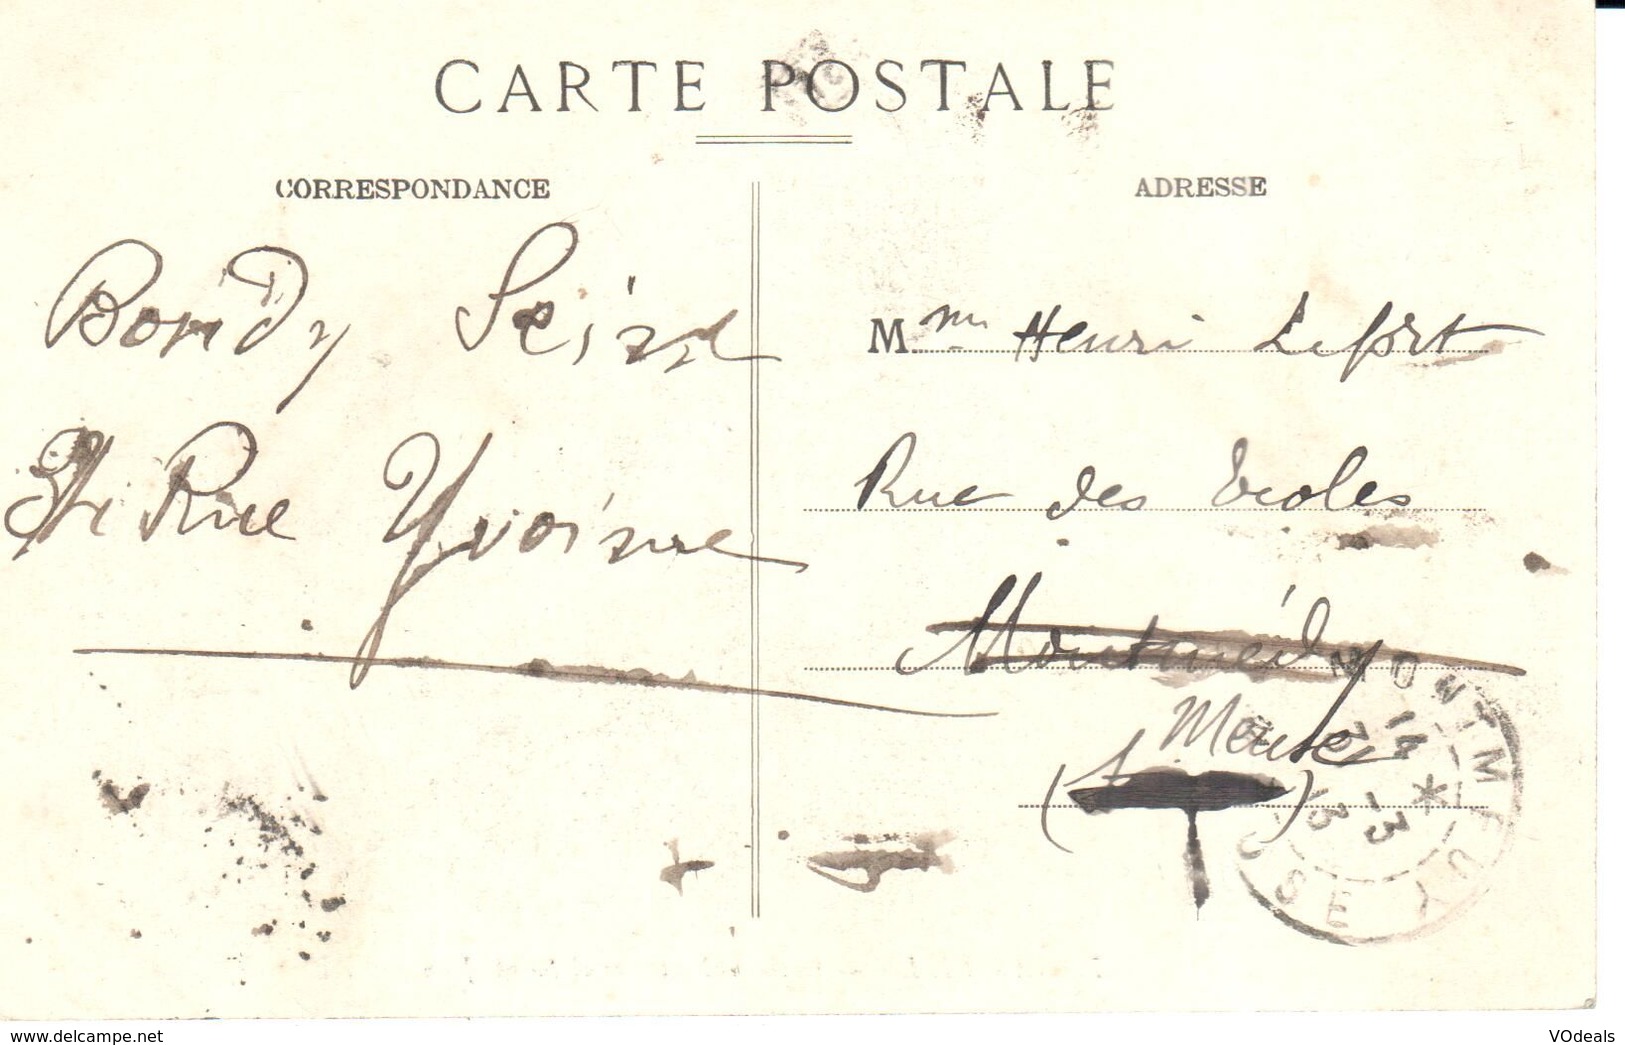 CARTE POSTALE
CORRESPONDANCE
Bondy Seine
Rue Yvoinne
ADRESSE
Mme Henri Lefort
Rue des Ecoles
Montmédy
Meuse
MONTMEDY
MEUSE
14
31 -3
13
delcampe.net
VOdeals